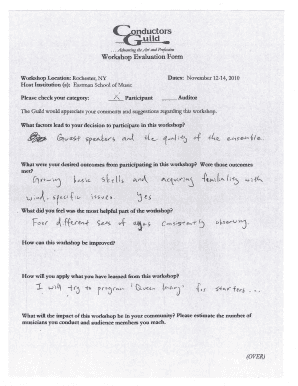 Conductors
Guild
Advancing the Art and Profession
Workshop Evaluation Form
Workshop Location: Rochester, NY Dates: November 12-14, 2010
Host Institution (s): Eastman School of Music
Please check your category: X Participant Auditor
The Guild would appreciate your comments and suggestions regarding this workshop.
What factors lead to your decision to participate in this workshop?
Guest speakers and the quality of the ensemble.
What were your desired outcomes from participating in this workshop? Were those outcomes
met?
Growing basic skills and acquiring familiarity with
wind-specific issues. Yes
What did you feel was the most helpful part of the workshop?
Four different sets of eyes consistently observing.
How can this workshop be improved?
How will you apply what you have learned from this workshop?
I will try to program "Queen Mary" for starters...
What will the impact of this workshop be in your community? Please estimate the number of
musicians you conduct and audience members you reach.
(OVER)